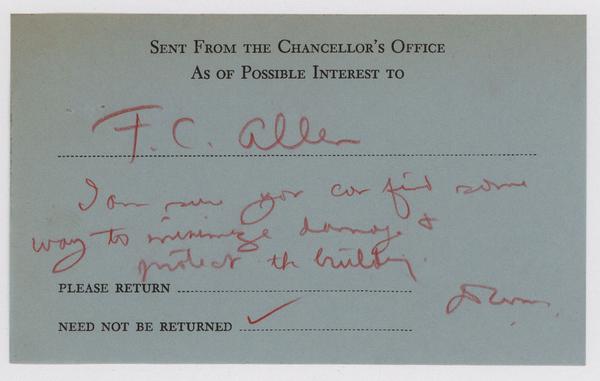 Sent From the Chancellor's Office
As of Possible Interest to
F. C. Allen
I am sure you can find some
way to minimize damage &
protect the building.
Please Return
Need Not Be Returned ✓